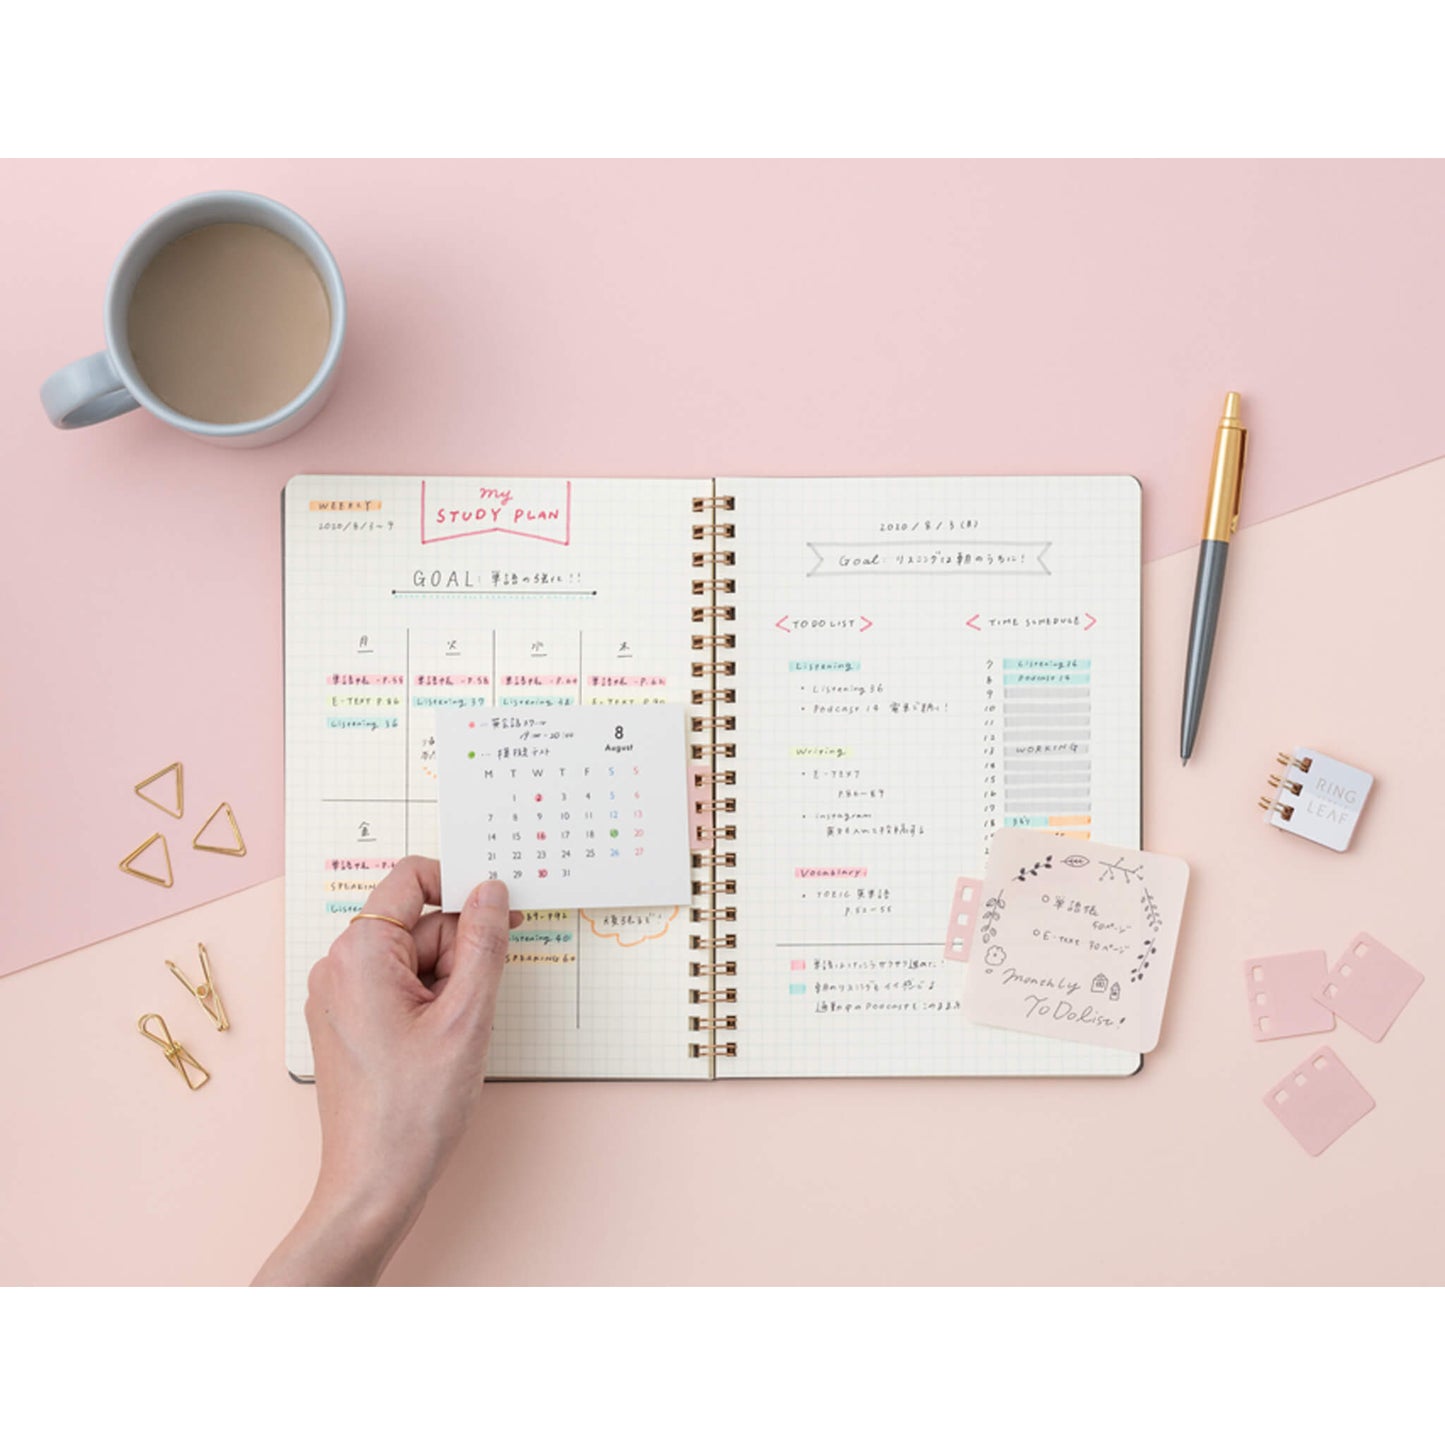 WEEKLY
2020/8/3~9
My
STUDY PLAN
GOAL: 単語の強化!!
月
火
水
木
単語帳 -P.55
単語帳 -P.58
単語帳
単語帳
E-TEXT P.86
Listening 37
Listening 38
E-TEXT P.90
Listening 36
金
単語帳
SPEAKING
P.92
Listening 40
SPEAKING 60
頑張るぞ!
英会話スクール
19:00-20:00
模擬テスト
8
August
M T W T F S S
1 2 3 4 5 6
7 8 9 10 11 12 13
14 15 16 17 18 19 20
21 22 23 24 25 26 27
28 29 30 31
2020/8/3(月)
Goal: リスニングは朝のうちに!
TO DO LIST
Listening
・Listening 36
・Podcast 14 電車で聴く!
Writing
・E-TEXT
P.86-89
・instagram
英文も入れて投稿する
Vocabulary
・TOEIC 英単語
P.52-55
TIME SCHEDULE
7 Listening 36
8 Podcast 14
9
10
11
12
13 WORKING
14
15
16
17
18
単語はけっこうサクサク進めた!
朝のリスニングもイイ感じ♪
通勤中のPodcastもこのまま
単語帳
50ページ
E-TEXT 30ページ
monthly
To Do List!
RING
LEAF